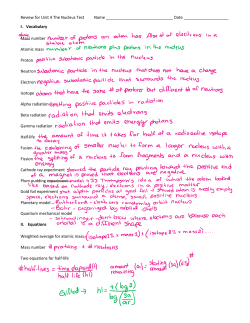 Review for Unit # The Nucleus Test Name Date
I. Vocabulary
Mass number number of protons an atom has. Also # of electrons in a stable atom
Atomic mass number of neutrons plus protons in the nucleus
Proton positive subatomic particle in the nucleus
Neutron subatomic particle in the nucleus that does not have a charge
Electron negative subatomic particle that surrounds the nucleus
Isotope atoms that have the same # of protons but different # of neutrons
Alpha radiation emitting positive particles in radiation
Beta radiation radiation that emits electrons
Gamma radiation radiation that emits energy protons
Half life the amount of time it takes for half of a radioactive isotope to decay
Fusion the combining of smaller nuclei to form a larger nucleus with a greater mass
Fission the splitting of a nucleus to form fragments and a nucleus with energy
Cathode ray experiment towards the particle ray positive toward the positive end of a magnet & proved that electrons are negative
Plum pudding model JJ Thompson's idea of what the atom looked like based on cathode ray, electrons in a positive matter
Gold foil experiment shot alpha particles at gold foil & found atom is mostly empty space, electrons surround a dense, small, positive nucleus
Planetary model Rutherford - electrons randomly orbit nucleus
Bohr - organized by orbital shells
Quantum mechanical model
- Schrodinger - don't know where electrons are because each orbital is a different shape
II. Equations
Weighted average for atomic mass (isotope % × mass) + (isotope % × mass)...
Mass number # protons + # neutrons
Two equations for half life
# half lives = time elapsed (t) / half life (hl) amount remaining (ar) = starting amount (sa) / 2
hl = t (log 2) / log (sa/ar)